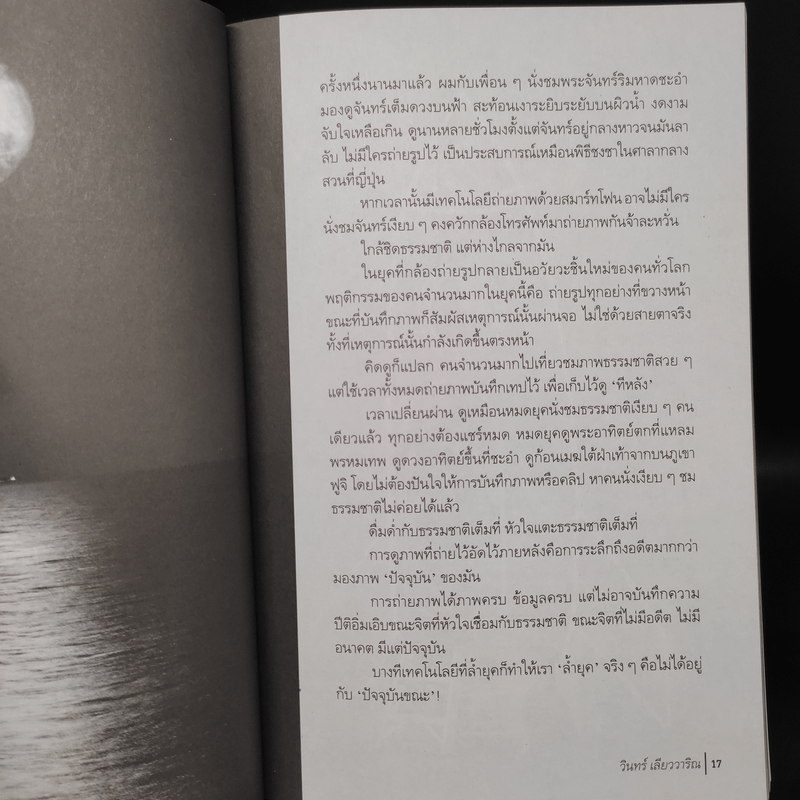 ครั้งหนึ่งนานมาแล้ว ผมกับเพื่อน ๆ นั่งชมพระจันทร์ริมหาดชะอำ
มองดูจันทร์เต็มดวงบนฟ้า สะท้อนเงาระยิบระยับบนผิวน้ำ งดงาม
จับใจเหลือเกิน ดูนานหลายชั่วโมงตั้งแต่จันทร์อยู่กลางหาวจนมันลา
ลับ ไม่มีใครถ่ายรูปไว้ เป็นประสบการณ์เหมือนพิธีชงชาในศาลากลาง
สวนที่ญี่ปุ่น
หากเวลานั้นมีเทคโนโลยีถ่ายภาพด้วยสมาร์ทโฟน อาจไม่มีใคร
นั่งชมจันทร์เงียบ ๆ คงควักกล้องโทรศัพท์มาถ่ายภาพกันจ้าละหวั่น
ใกล้ชิดธรรมชาติ แต่ห่างไกลจากมัน
ในยุคที่กล้องถ่ายรูปกลายเป็นอวัยวะชิ้นใหม่ของคนทั่วโลก
พฤติกรรมของคนจำนวนมากในยุคนี้คือ ถ่ายรูปทุกอย่างที่ขวางหน้า
ขณะที่บันทึกภาพก็สัมผัสเหตุการณ์นั้นผ่านจอ ไม่ใช่ด้วยสายตาจริง
ทั้งที่เหตุการณ์นั้นกำลังเกิดขึ้นตรงหน้า
คิดดูก็แปลก คนจำนวนมากไปเที่ยวชมภาพธรรมชาติสวย ๆ
แต่ใช้เวลาทั้งหมดถ่ายภาพบันทึกเทปไว้ เพื่อเก็บไว้ดู ‘ทีหลัง’
เวลาเปลี่ยนผ่าน ดูเหมือนหมดยุคนั่งชมธรรมชาติเงียบ ๆ คน
เดียวแล้ว ทุกอย่างต้องแชร์หมด หมดยุคดูพระอาทิตย์ตกที่แหลม
พรหมเทพ ดูดวงอาทิตย์ขึ้นที่ชะอำ ดูก้อนเมฆใต้ฝ่าเท้าจากบนภูเขา
ฟูจิ โดยไม่ต้องปันใจให้การบันทึกภาพหรือคลิป หาคนนั่งเงียบ ๆ ชม
ธรรมชาติไม่ค่อยได้แล้ว
ดื่มด่ำกับธรรมชาติเต็มที่ หัวใจแตะธรรมชาติเต็มที่
การดูภาพที่ถ่ายไว้อัดไว้ภายหลังคือการระลึกถึงอดีตมากกว่า
มองภาพ ‘ปัจจุบัน’ ของมัน
การถ่ายภาพได้ภาพครบ ข้อมูลครบ แต่ไม่อาจบันทึกความ
ปีติอิ่มเอิบขณะจิตที่หัวใจเชื่อมกับธรรมชาติ ขณะจิตที่ไม่มีอดีต ไม่มี
อนาคต มีแต่ปัจจุบัน
บางทีเทคโนโลยีที่ล้ำยุคก็ทำให้เรา ‘ล้ำยุค’ จริง ๆ คือไม่ได้อยู่
กับ ‘ปัจจุบันขณะ’!
วินทร์ เลียววาริณ | 17